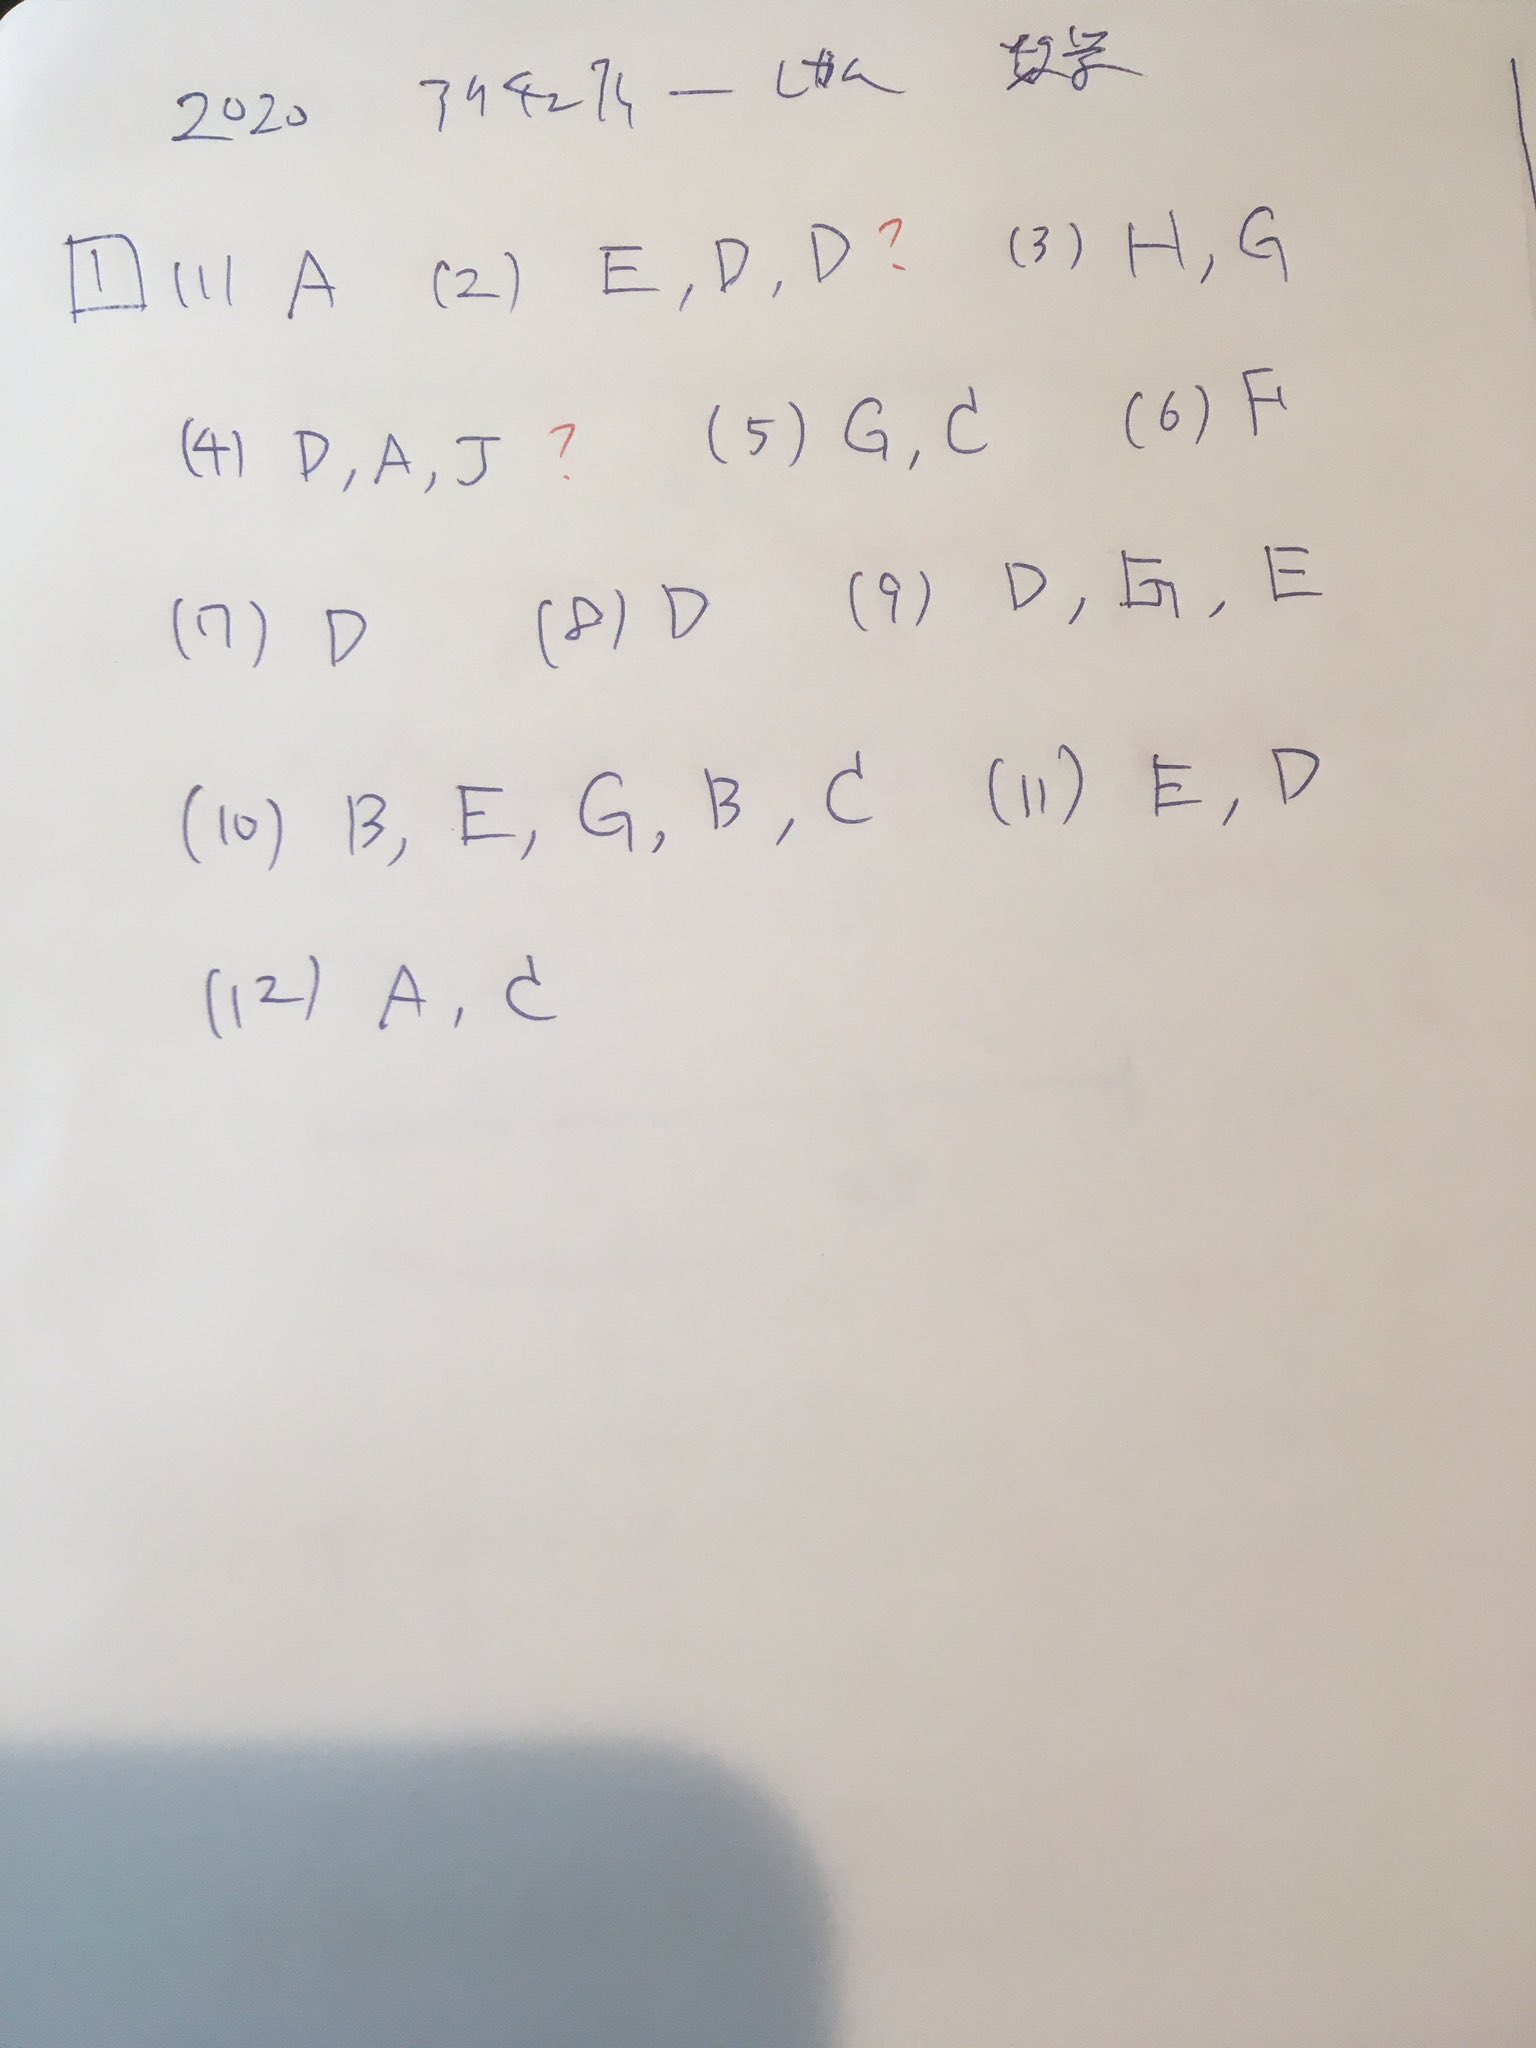 2020 数学
1 (1) A (2) E, D, D ? (3) H, G
(4) D, A, J ? (5) G, C (6) F
(7) D (8) D (9) D, G, E
(10) B, E, G, B, C (11) E, D
(12) A, C